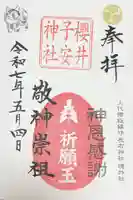 奉拝
櫻井
子安
神社
神恩感謝
祈願玉
敬神崇祖
令和七年五月四日